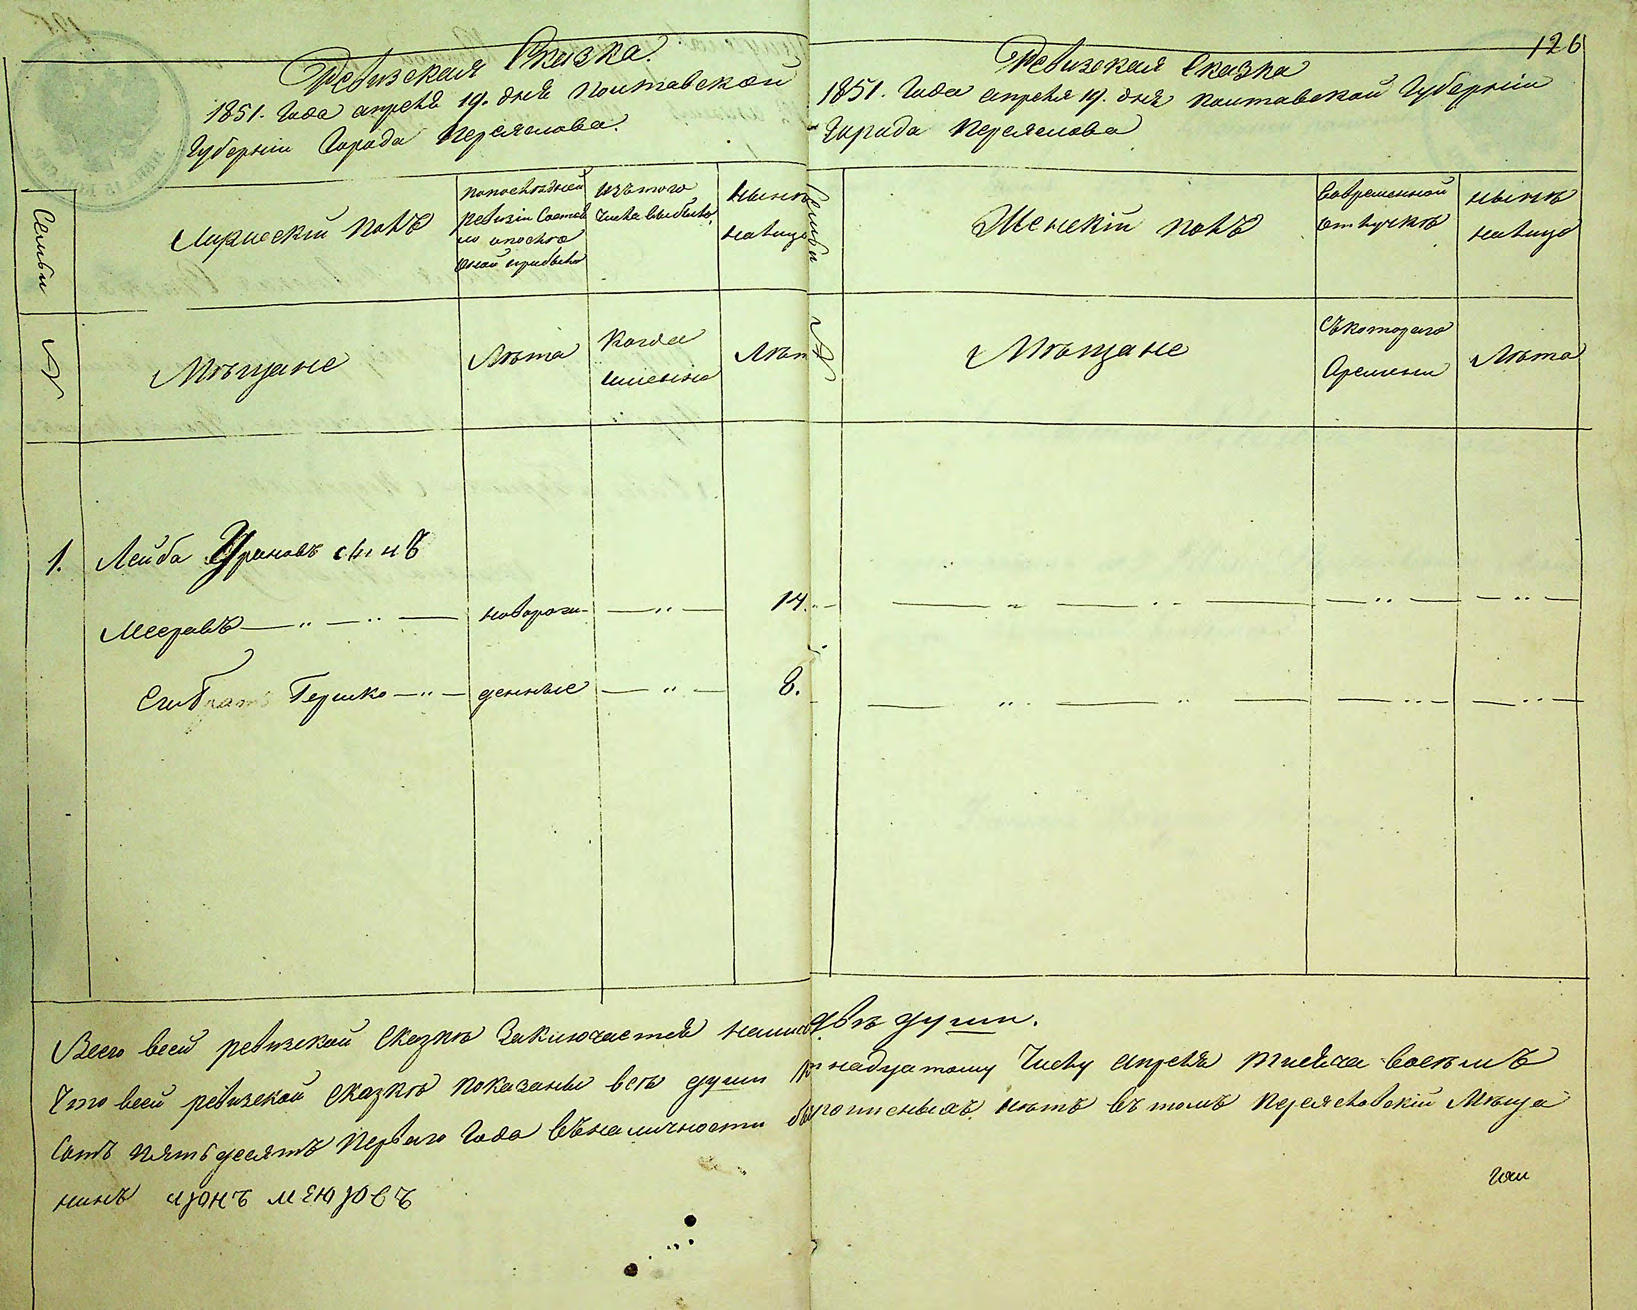 126
Ревизская Сказка.
1851. Года апреля 19. дня Полтавской
Губерніи Города Переяслова.
Ревизская Сказка
1851. Года апреля 19. дня Полтавской Губерніи
Города Переяслова
Семьи
Мужескій полъ
Попоследней
ревизіи Состоя
ло
изътого
Числа выбыло
Ныне
налицо
Семьи
Женскій полъ
Вовременной
отлучке
ныне
налицо
№
Мѣщане
Лѣта
Когда
именно
Лѣт
№
Мѣщане
Съкотораго
Времени
Лѣта
1. Лейба сынъ
Мееровъ — " — " — новорож- — " — 14.
Его Братъ Гершко — " — денные — " — 8.
Всего всей ревизской Сказке Заключается налицо две души.
Что всей ревизской Сказке показаны все души надцатому Числу апреля месяца восемь
Сотъ пятьдесятъ Перваго Года въналичности прописныхъ нетъ въ томъ Переясловскій Меща
нинъ